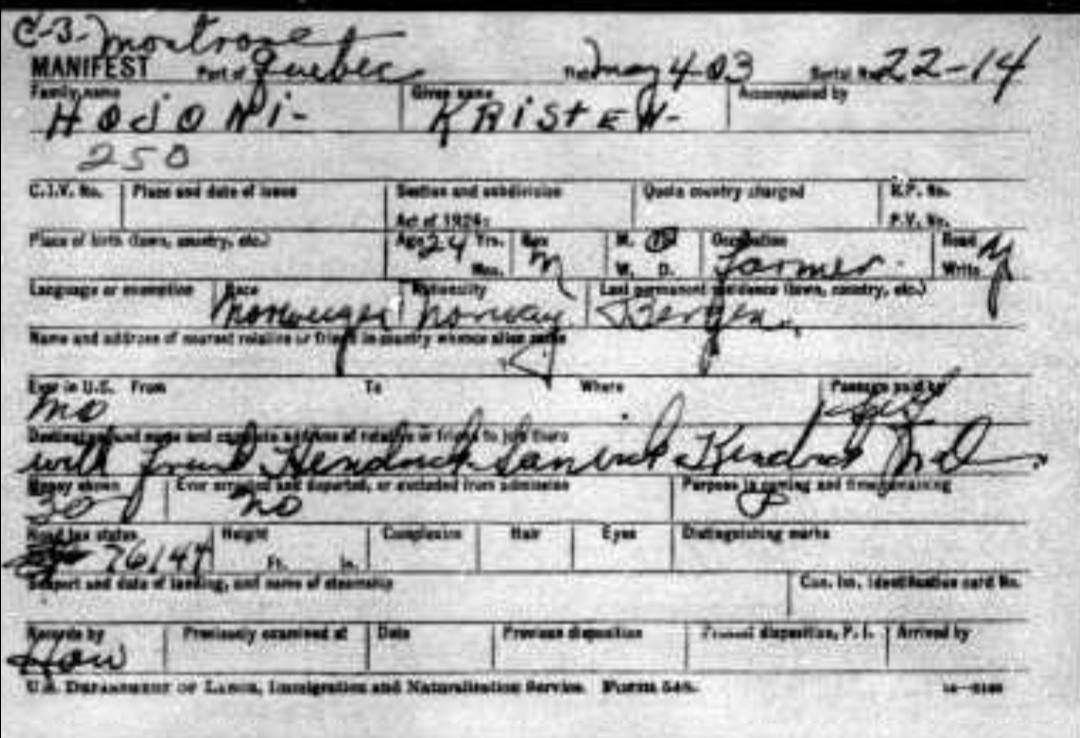 C-3- Montrose
MANIFEST Port of Quebec May 4-03 Serial No. 22-14
Family name Given name Accompanied by
HOJONI- KRISTEN-
250
C.I.V. No. Place and date of issue Section and subdivision Quota country charged R.P. No.
Act of 1924: P.V. No.
Place of birth (town, country, etc.) Age 24 Yrs. Sex M M. S Occupation Read
Mos. W. D. farmer. Write y
Language or exemption Race Nationality Last permanent residence (town, country, etc.)
Norway Bergen
Name and address of nearest relative or friend in country whence alien came
Ever in U.S. From To Where Passage paid by
no self
Destination, and name and complete address of relative or friend to join there
with friend Hendrick Kendrick
Money shown Ever arrested and deported, or excluded from admission Purpose in coming and time remaining
30 no
Head tax status Height Complexion Hair Eyes Distinguishing marks
76147 Ft. In.
Seaport and date of landing, and name of steamship Can. Im. Identification card No.
Records by Previously examined at Date Previous disposition Present disposition, P. I. Arrived by
U.S. DEPARTMENT OF LABOR, Immigration and Naturalization Service. Form 548.